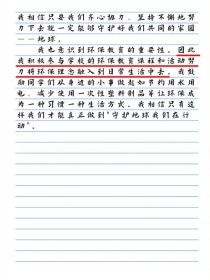 我相信只要我们齐心协力，坚持不懈地努
力下去就一定能够守护好我们共同的家园
——地球。
我也意识到环保教育的重要性。因此
我积极参与学校的环保教育课程和活动努
力将环保理念融入到日常生活中去。我鼓
励同学们从身边的小事做起如节约用水用
电、减少使用一次性塑料制品等让环保成
为一种习惯一种生活方式。我相信只有这
样我们才能真正做到"守护地球我们在行
动"。